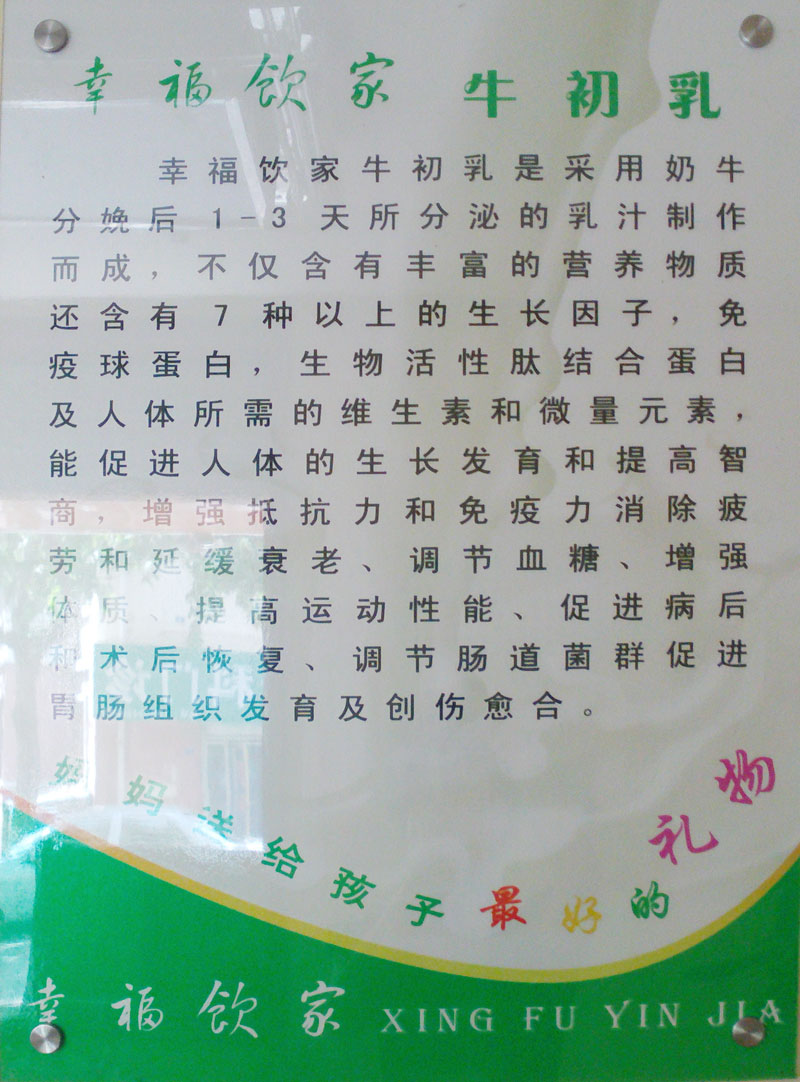 幸福饮家 牛初乳
幸福饮家牛初乳是采用奶牛
分娩后1-3天所分泌的乳汁制作
而成，不仅含有丰富的营养物质
还含有7种以上的生长因子，免
疫球蛋白，生物活性肽结合蛋白
及人体所需的维生素和微量元素，
能促进人体的生长发育和提高智
商，增强抵抗力和免疫力消除疲
劳和延缓衰老、调节血糖、增强
体质、提高运动性能、促进病后
和术后恢复、调节肠道菌群促进
胃肠组织发育及创伤愈合。
妈妈送给孩子最好的礼物
幸福饮家 XING FU YIN JIA